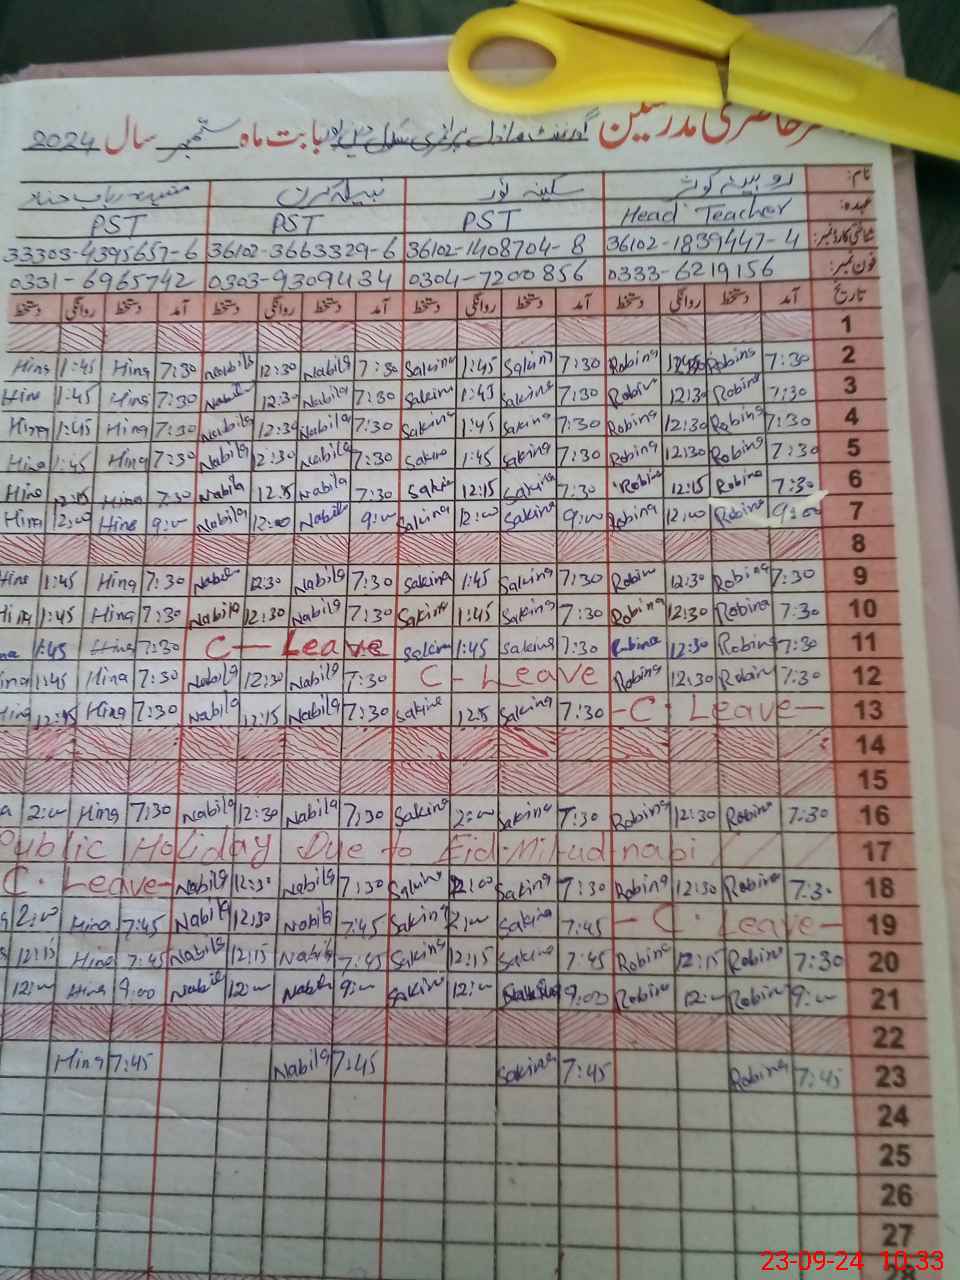 حاضری مدرسین گورنمنٹ ماڈل پرائمری سکول بابت ماہ ستمبر سال 2024
نام: روبینہ کوثر سکینہ نور نبیلہ کرن
عہدہ: Head Teacher PST PST PST
شناختی کارڈ نمبر: 36102-1839447-4 36102-1408704-8 36102-3663329-6 33303-4395657-6
فون نمبر: 0333-6219156 0304-7200856 0303-9309434 0331-6965742
تاریخ آمد دستخط روانگی دستخط آمد دستخط روانگی دستخط آمد دستخط روانگی دستخط آمد دستخط روانگی دستخط
1
2 7:30 Robina Robina 7:30 Sakina 1:45 Sakina 7:30 Nabila 12:30 Nabila 7:30 Hina 1:45 Hina
3 7:30 Robina 12:30 Robina 7:30 Sakina 1:45 Sakina 7:30 Nabila 12:30 Nabila 7:30 Hina 1:45 Hina
4 7:30 Robina 12:30 Robina 7:30 Sakina 1:45 Sakina 7:30 Nabila 12:30 Nabila 7:30 Hina 1:45 Hina
5 7:30 Robina 12:30 Robina 7:30 Sakina 1:45 Sakina 7:30 Nabila 12:30 Nabila 7:30 Hina 1:45 Hina
6 7:30 Robina 12:15 Robina 7:30 Sakina 12:15 Sakina 7:30 Nabila 12:15 Nabila 7:30 Hina 12:15 Hina
7 9:00 Robina 12:00 Robina 9:00 Sakina 12:00 Sakina 9:00 Nabila 12:00 Nabila 9:00 Hina 12:00 Hina
8
9 7:30 Robina 12:30 Robina 7:30 Sakina 1:45 Sakina 7:30 Nabila 12:30 Nabila 7:30 Hina 1:45 Hina
10 7:30 Robina 12:30 Robina 7:30 Sakina 1:45 Sakina 7:30 Nabila 12:30 Nabila 7:30 Hina 1:45 Hina
11 7:30 Robina 12:30 Robina 7:30 Sakina 1:45 Sakina C- Leave 7:30 Hina 1:45
12 7:30 Robina 12:30 Robina C- Leave 7:30 Nabila 12:30 Nabila 7:30 Hina 1:45
13 -C. Leave- 7:30 Sakina 12:15 Sakina 7:30 Nabila 12:15 Nabila 7:30 Hina 12:15 Hina
14
15
16 7:30 Robina 12:30 Robina 7:30 Sakina 2:00 Sakina 7:30 Nabila 12:30 Nabila 7:30 Hina 2:00
17 Public Holiday Due to Eid-Milud-nabi
18 7:30 Robina 12:30 Robina 7:30 Sakina 2:00 Sakina 7:30 Nabila 12:30 Nabila C. Leave-
19 -C. Leave- 7:45 Sakina 2:00 Sakina 7:45 Nabila 12:30 Nabila 7:45 Hina 2:00
20 7:30 Robina 12:15 Robina 7:45 Sakina 12:15 Sakina 7:45 Nabila 12:15 Nabila 7:45 Hina 12:15
21 9:00 Robina 12:00 Robina 9:00 Sakina 12:00 Sakina 9:00 Nabila 12:00 Nabila 9:00 Hina 12:00
22
23 7:45 Robina 7:45 Sakina 7:45 Nabila 7:45 Hina
24
25
26
27
23-09-24 10:33